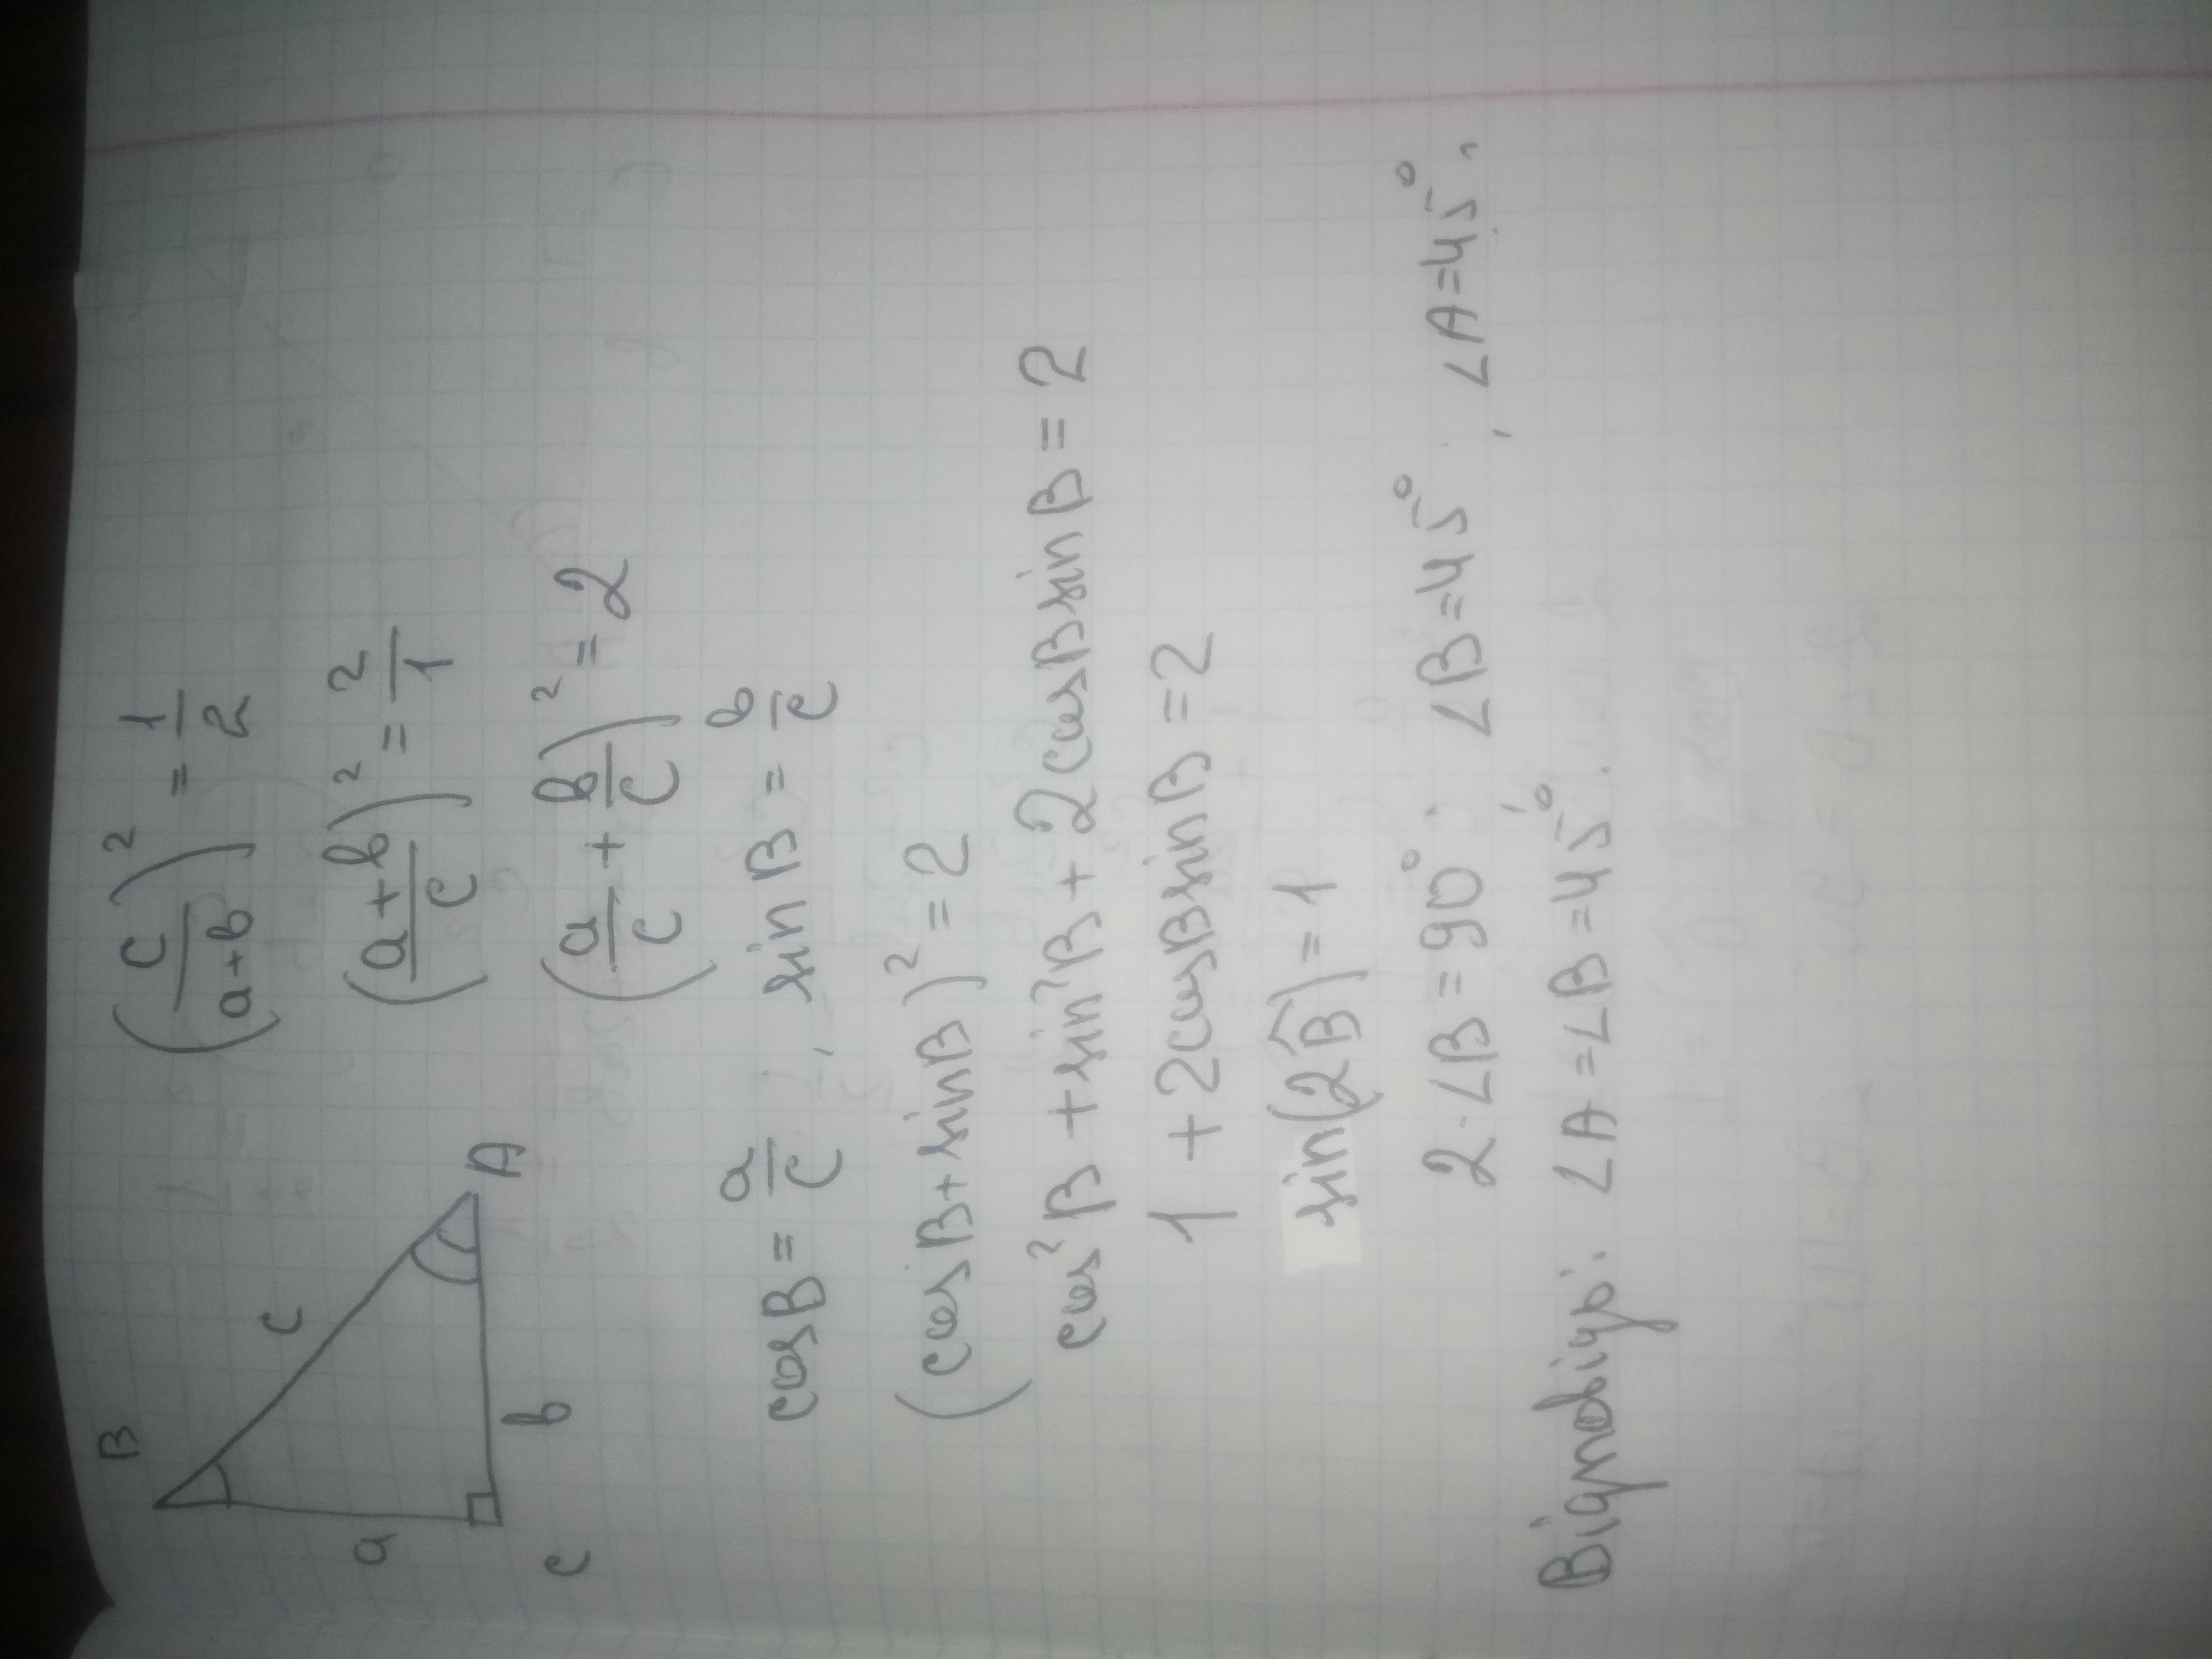 B
c
a
A
C
b
(c/(a+b))² = 1/2
((a+b)/c)² = 2/1
(a/c + b/c)² = 2
cosB = a/c , sinB = b/c
(cosB+sinB)² = 2
cos²B + sin²B + 2cosBsinB = 2
1 + 2cosBsinB = 2
sin(2B̂) = 1
2·∠B = 90° ; ∠B=45° ; ∠A=45°.
Відповідь: ∠A=∠B=45°.